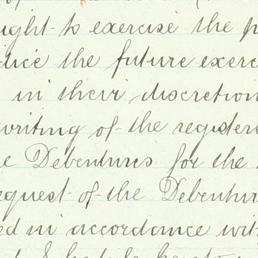 ught to exercise the p
dice the future exerc
in their discretion
writing of the register
e Debentures for the
equest of the Debentur
ed in accordance wit